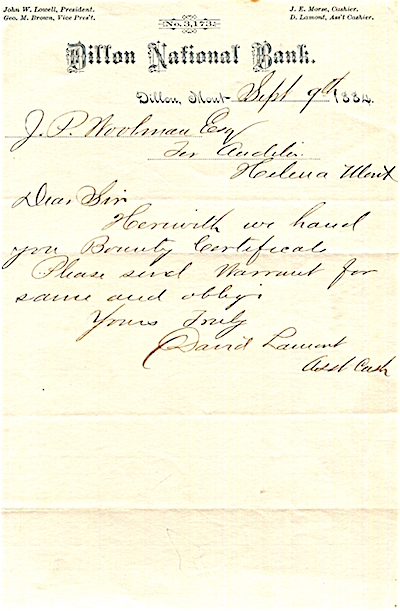 John W. Lowell, President.
Geo. M. Brown, Vice Pres't.
J. E. Morse, Cashier.
D. Lamont, Ass't Cashier.
No. 3,173.
Dillon National Bank.
Dillon, Mont. Sept 9th 1884.
J. P. Woolman Esq
Ter Auditor
Helena Mont
Dear Sir
Herewith we hand
you Bounty Certificate
Please send Warrant for
same and oblige
Yours Truly
David Lamont
Asst Cash